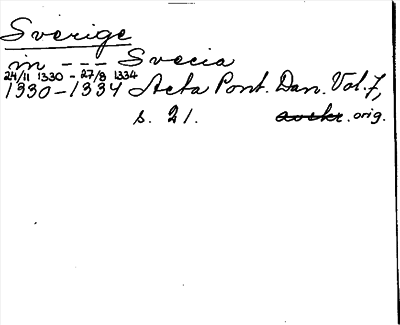 Sverige
in --- Svecia
24/11 1330 - 27/8 1334
1330-1334 Acta Pont. Dan. Vol. 7,
s. 21. avskr. orig.